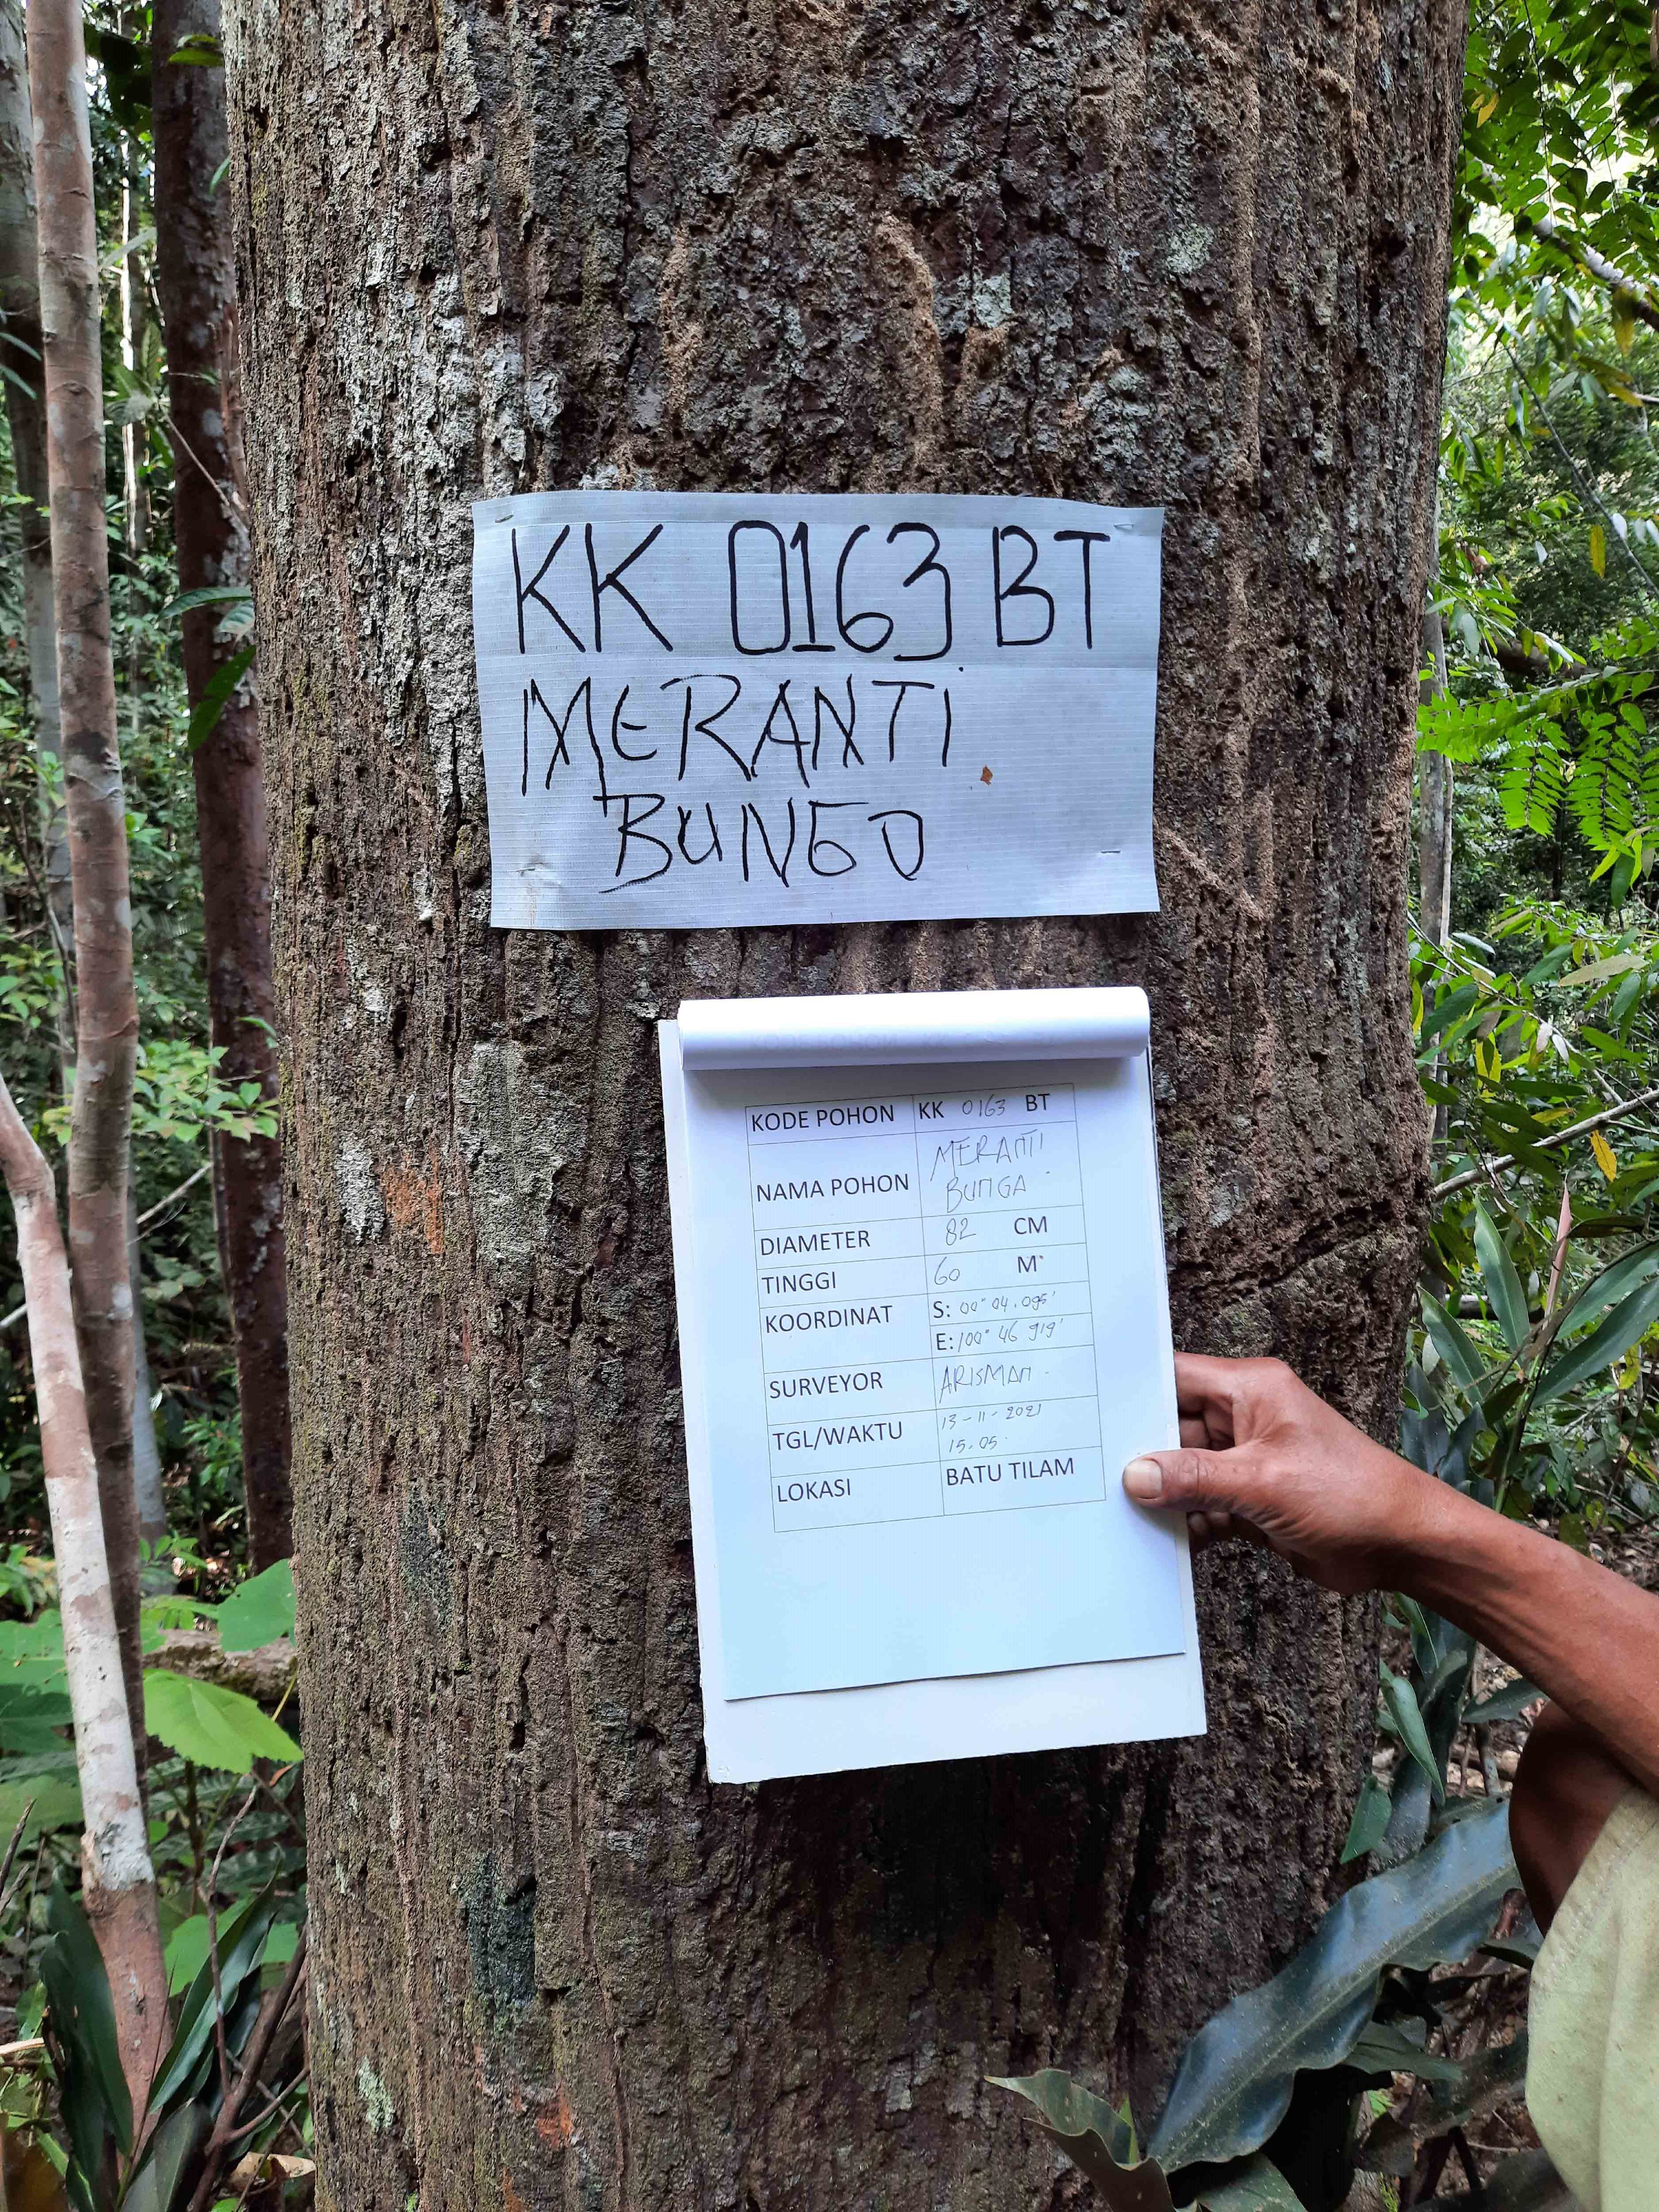 KK 0163 BT
MERANTI
BUNGO
KODE POHON KK 0163 BT
NAMA POHON MERANTI
BUNGA
DIAMETER 82 CM
TINGGI 60 M
KOORDINAT S: 00° 04.095'
E: 100° 46 919'
SURVEYOR ARISMAN
TGL/WAKTU 13-11-2021
15.05
LOKASI BATU TILAM